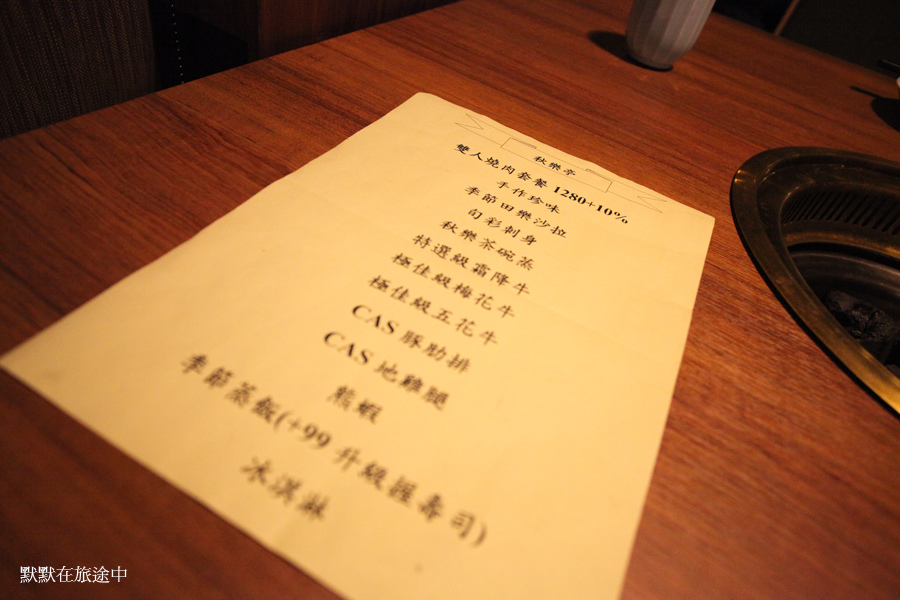 秋樂亭
雙人燒肉套餐 1280+10%
手作珍味
季節田樂沙拉
旬彩刺身
秋樂茶碗蒸
特選級霜降牛
極佳級梅花牛
極佳級五花牛
CAS 豚肋排
CAS 地雞腿
熊蝦
季節蒸飯(+99 升級握壽司)
冰淇淋
默默在旅途中